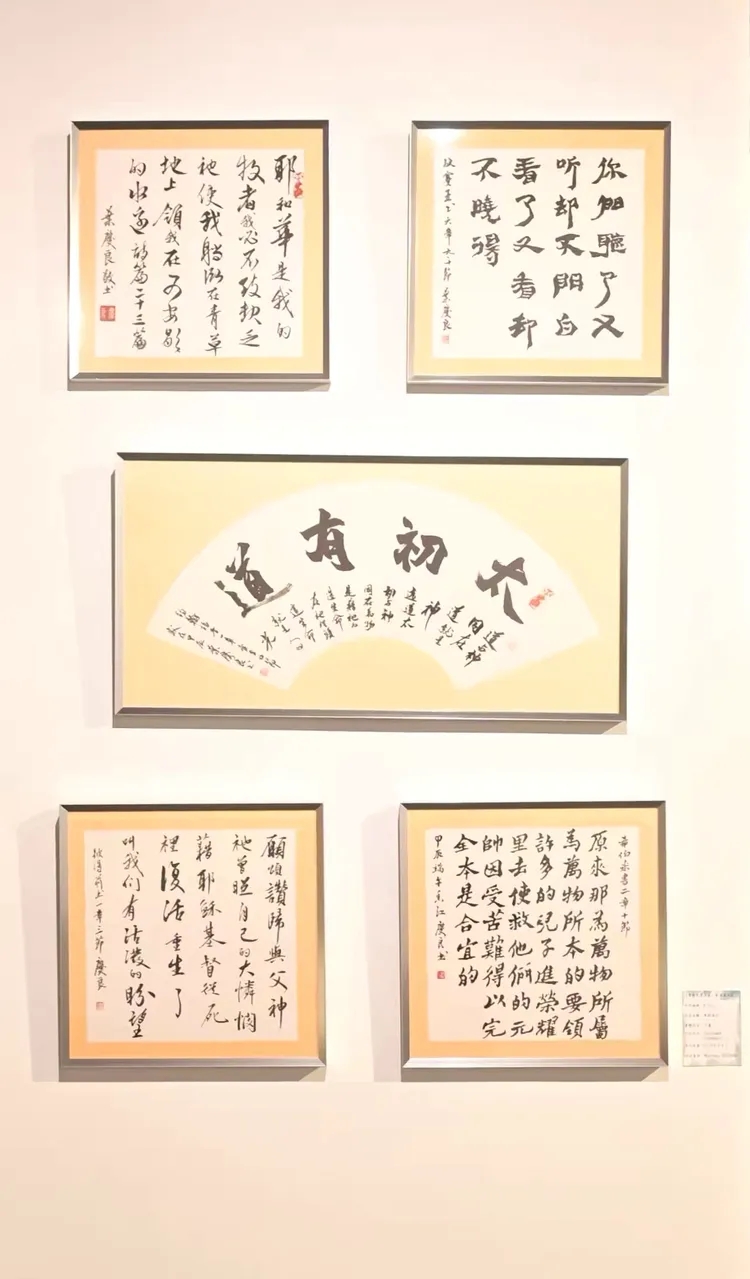 耶和華是我的
牧者我必不致缺乏
祂使我躺臥在青草
地上領我在可安歇
的水邊 詩篇二十三篇
葉慶良敬书
你们聽了又
听却不明白
看了又看却
不曉得
葉慶良
太初有道
道与神
同在
道就是
神
這道太
初与神
同在萬物
是藉他
造生命
在他裡頭
這生命
就是人的
光
願頌讚歸與父神
祂曾照自己的大憐憫
藉耶穌基督從死
裡復活重生了
叫我们有活潑的盼望
彼得前书一章三節 慶良
希伯來書二章十節
原來那為萬物所屬
為萬物所本的要領
許多的兒子進榮耀
里去使救他們的元
帥因受苦難得以完
全本是合宜的
甲辰端午香江慶良书